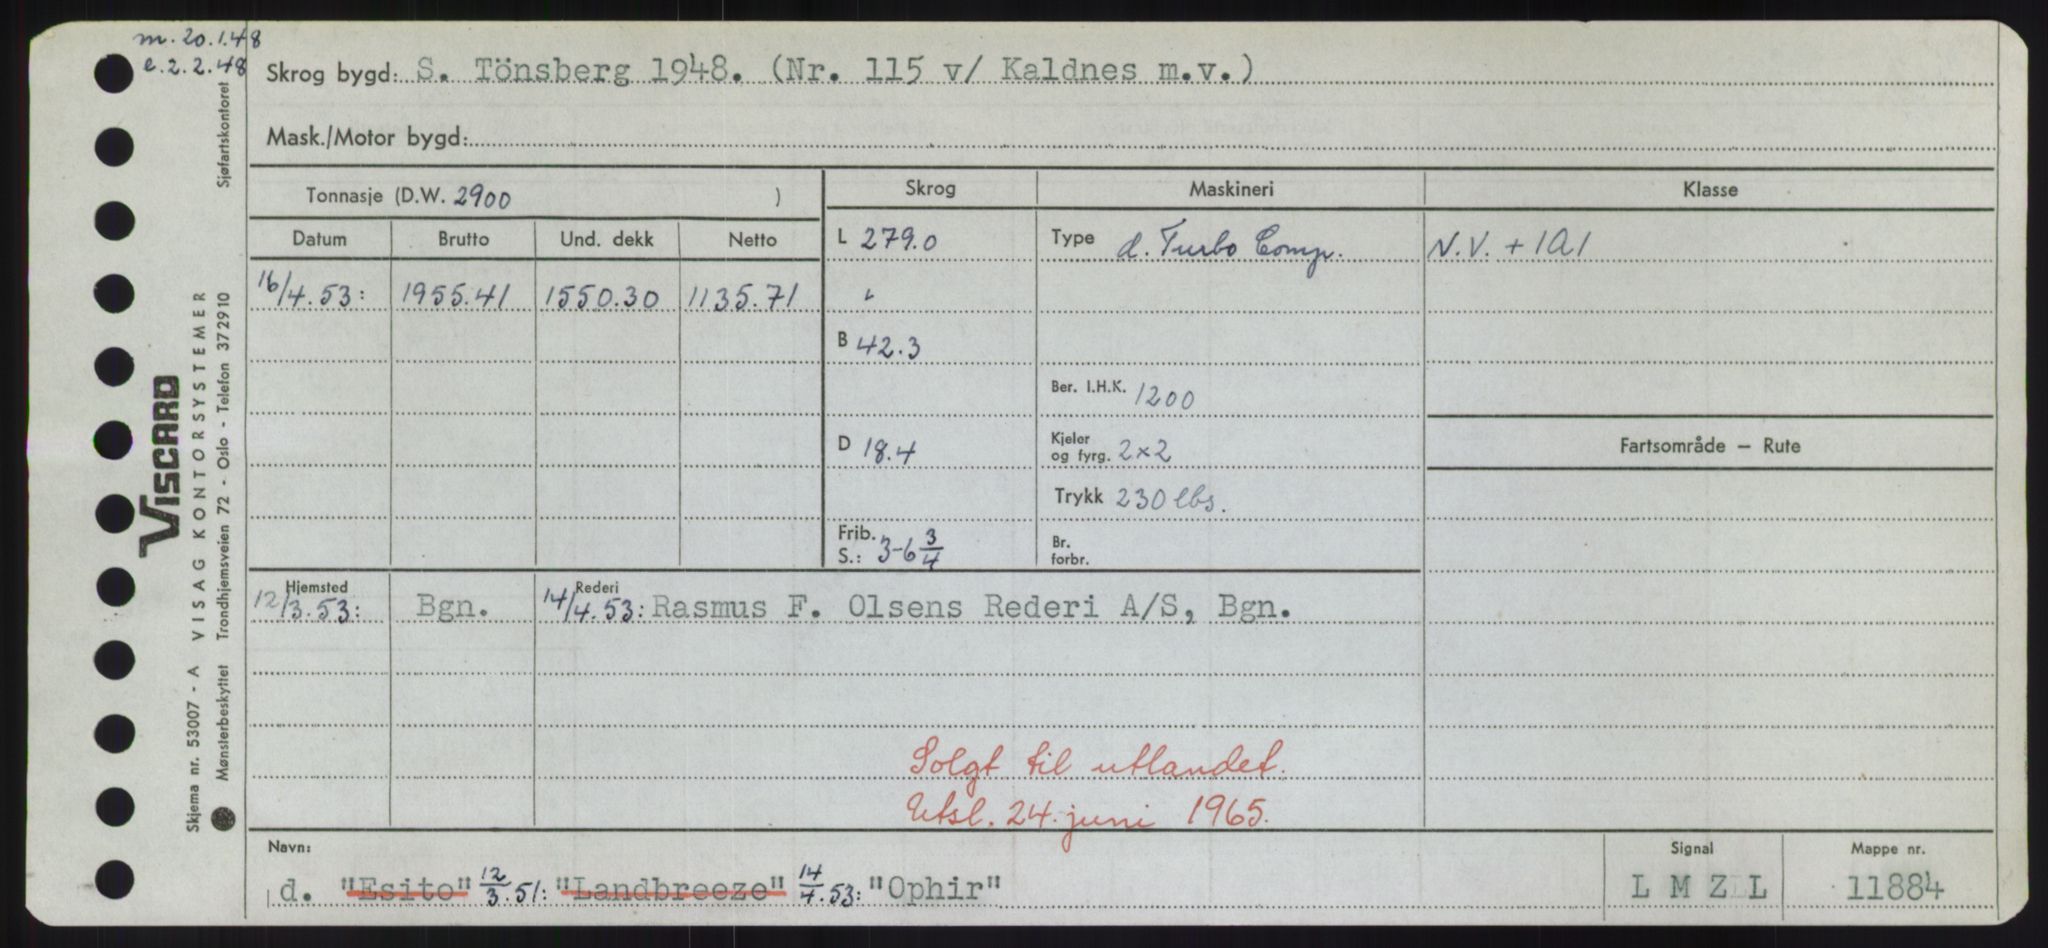 m. 20.1.48
e. 2.2.48
Skrog bygd: S. Tönsberg 1948. (Nr. 115 v/ Kaldnes m.v.)
Mask./Motor bygd:
Tonnasje (D.W. 2900 )
Skrog
Maskineri
Klasse
Datum Brutto Und. dekk Netto
L 279.0
Type d. Turbo Comp.
N.V. + 1A1
16/4.53: 1955.41 1550.30 1135.71
B 42.3
Ber. I.H.K. 1200
D 18.4
Kjeler
og fyrg. 2x2
Fartsområde — Rute
Trykk 230 lbs.
Frib.
S.: 3-6 3/4
Br.
forbr.
Hjemsted
12/3.53: Bgn.
Rederi
14/4.53: Rasmus F. Olsens Rederi A/S, Bgn.
Solgt til utlandet.
Utsl. 24. juni 1965.
Navn:
d. "Esito" 12/3.51: "Landbreeze" 14/4.53: "Ophir"
Signal
L M Z L
Mappe nr.
11884
VISCARD
Skjema nr. 53007 - A VISAG KONTORSYSTEMER
Mønsterbeskyttet Trondhjemsveien 72 - Oslo - Telefon 372910 Sjøfartskontoret